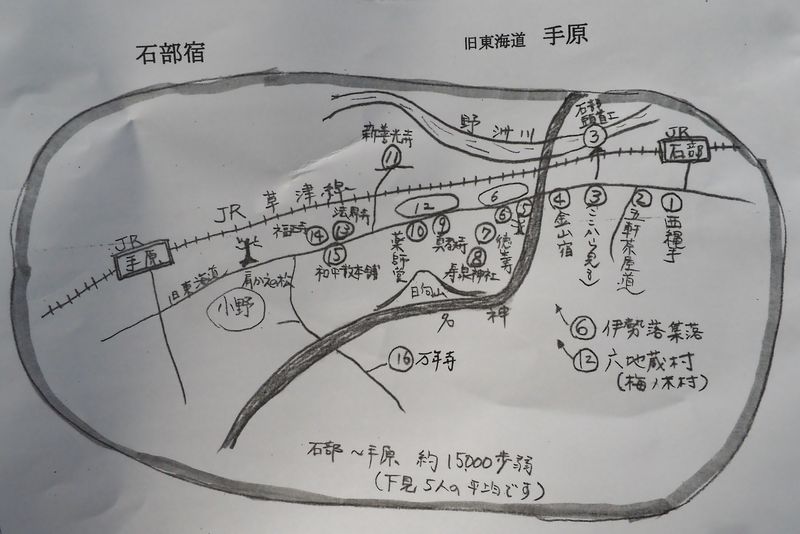 石部宿
旧東海道 手原
石部
頭首工
③
野洲川
JR
石部
新善光寺
⑪
JR 草津線
JR
手原
旧東海道
肩かえの松
小野
福正寺
⑭
法界寺
⑬
⑮
和中散本舗
12
薬師堂
⑩
⑨
真教寺
6
⑥
⑤
⑦
徳生寺
⑧
寿泉神社
日向山
名神
④
金山宿
③
(ここから見る)
②
(五軒茶屋道)
①
西縄手
⑯万年寺
⑥伊勢落集落
⑫六地蔵村
(梅ノ木村)
石部～手原 約15000歩弱
(下見5人の平均です)